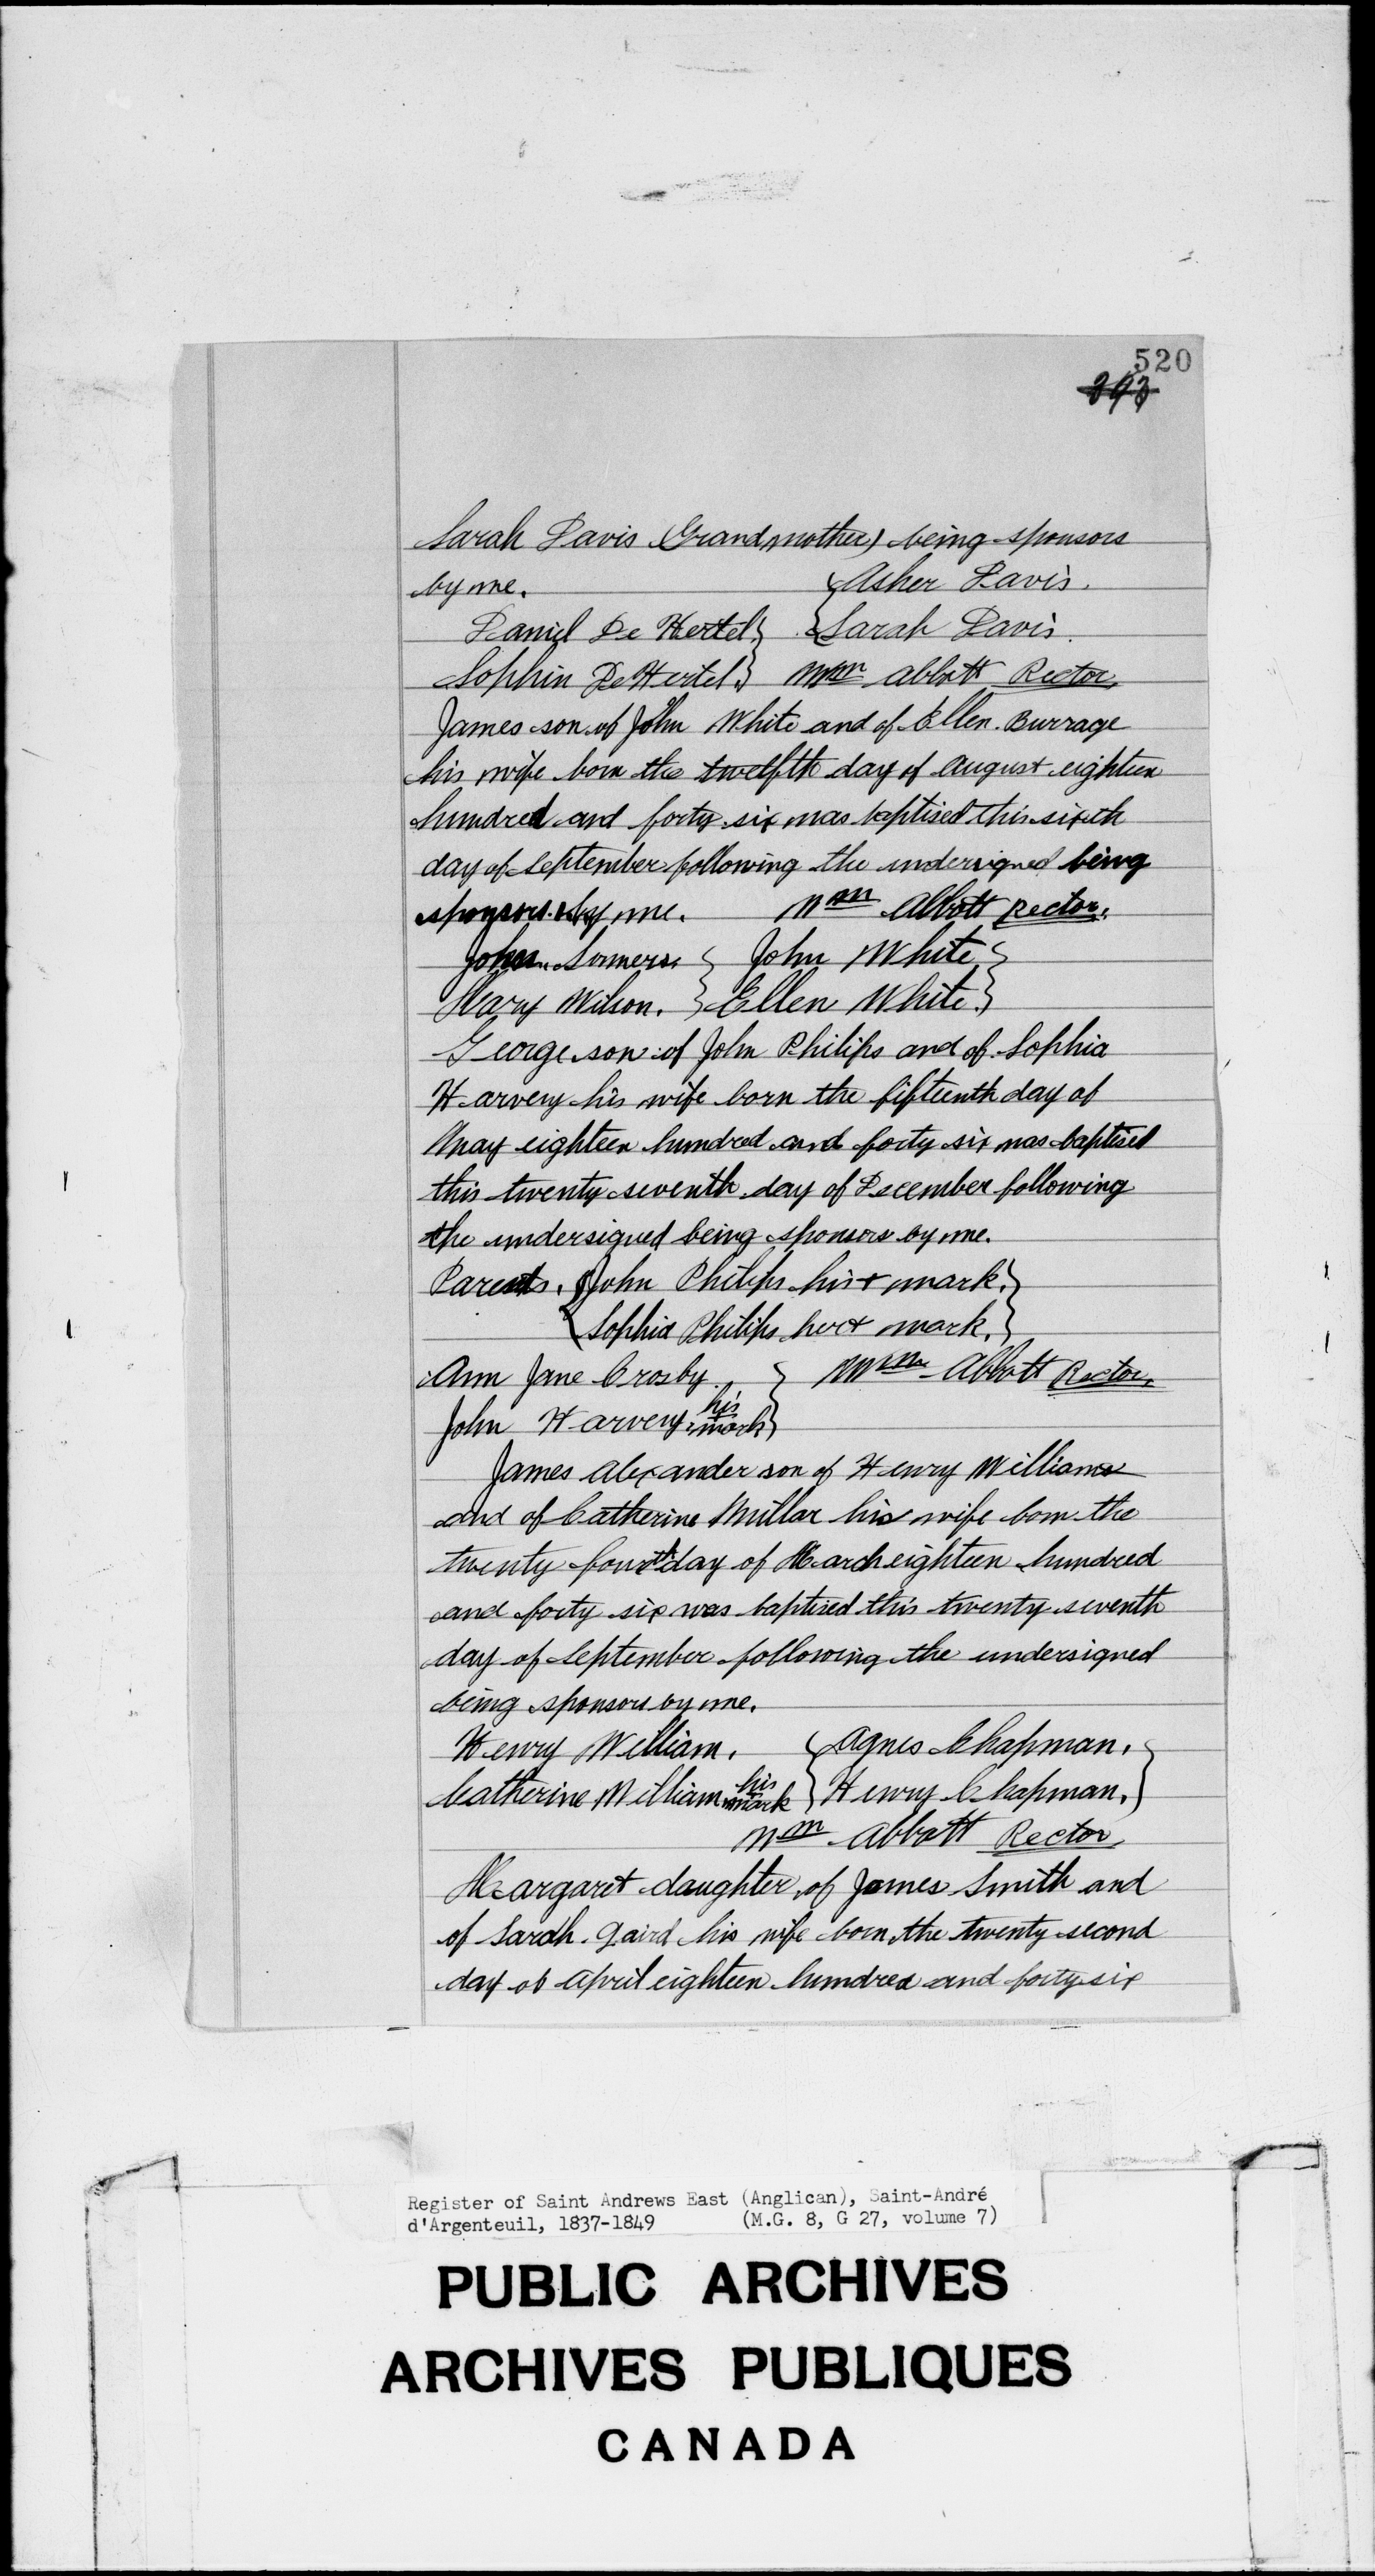 520
293
Sarah Davis (Grandmother) being sponsors
by me. {Asher Davis.
Daniel De Hertel} {Sarah Davis.
Sophin De Hertel.} Wm Abbott Rector,
James son of John White and of Ellen Burrage
his wife born the twelfth day of August eighteen
hundred and forty six was baptised this sixth
day of September following the undersigned being
sponsors by me. Wm Abbott Rector.
John Somers. } John White }
Mary Wilson. } Ellen White. }
George son of John Philips and of Sophia
Harvey his wife born the fifteenth day of
May eighteen hundred and forty six was baptised
this twenty seventh day of December following
the undersigned being sponsors by me.
Parents. {John Philips his + mark.}
{Sophia Philips her + mark.}
Ann Jane Crosby. } Wm Abbott Rector,
John Harvey his + mark}
James Alexander son of Henry Williams
and of Catherine Millar his wife born the
twenty fourth day of March eighteen hundred
and forty six was baptised this twenty seventh
day of September following the undersigned
being sponsors by me.
Henry William. {Agnes Chapman. }
Catherine William his mark {Henry Chapman. }
Wm Abbott Rector,
Margaret daughter of James Smith and
of Sarah Gaird his wife born the twenty second
day of April eighteen hundred and forty six
Register of Saint Andrews East (Anglican), Saint-André
d'Argenteuil, 1837-1849 (M.G. 8, G 27, volume 7)
PUBLIC ARCHIVES
ARCHIVES PUBLIQUES
CANADA